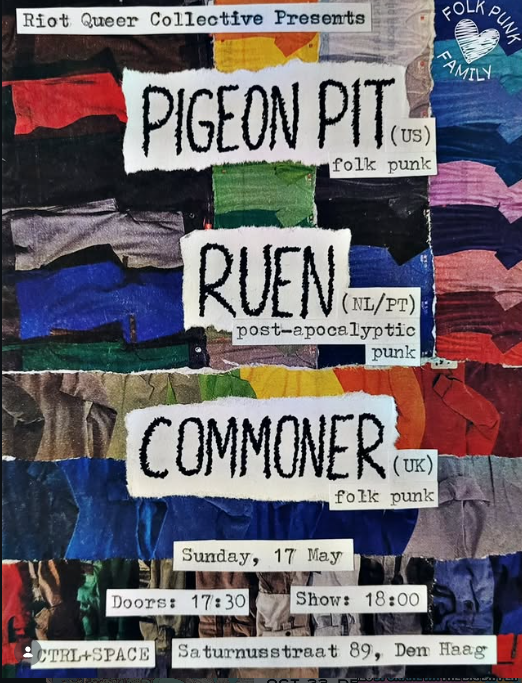 Riot Queer Collective Presents
FOLK PUNK
FAMILY
PIGEON PIT (US)
folk punk
RUEN (NL/PT)
post-apocalyptic
punk
COMMONER (UK)
folk punk
Sunday, 17 May
Doors: 17:30 Show: 18:00
CTRL+SPACE Saturnusstraat 89, Den Haag